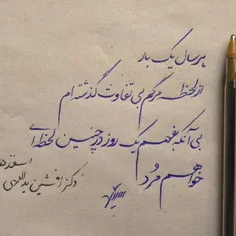 هر سال یک بار
از لحظه مرگم بی تفاوت گذشته ام
بی آنکه بفهمم یک روز در چنین لحظه ای
خواهم مرد
دکتر افشین یداللهی